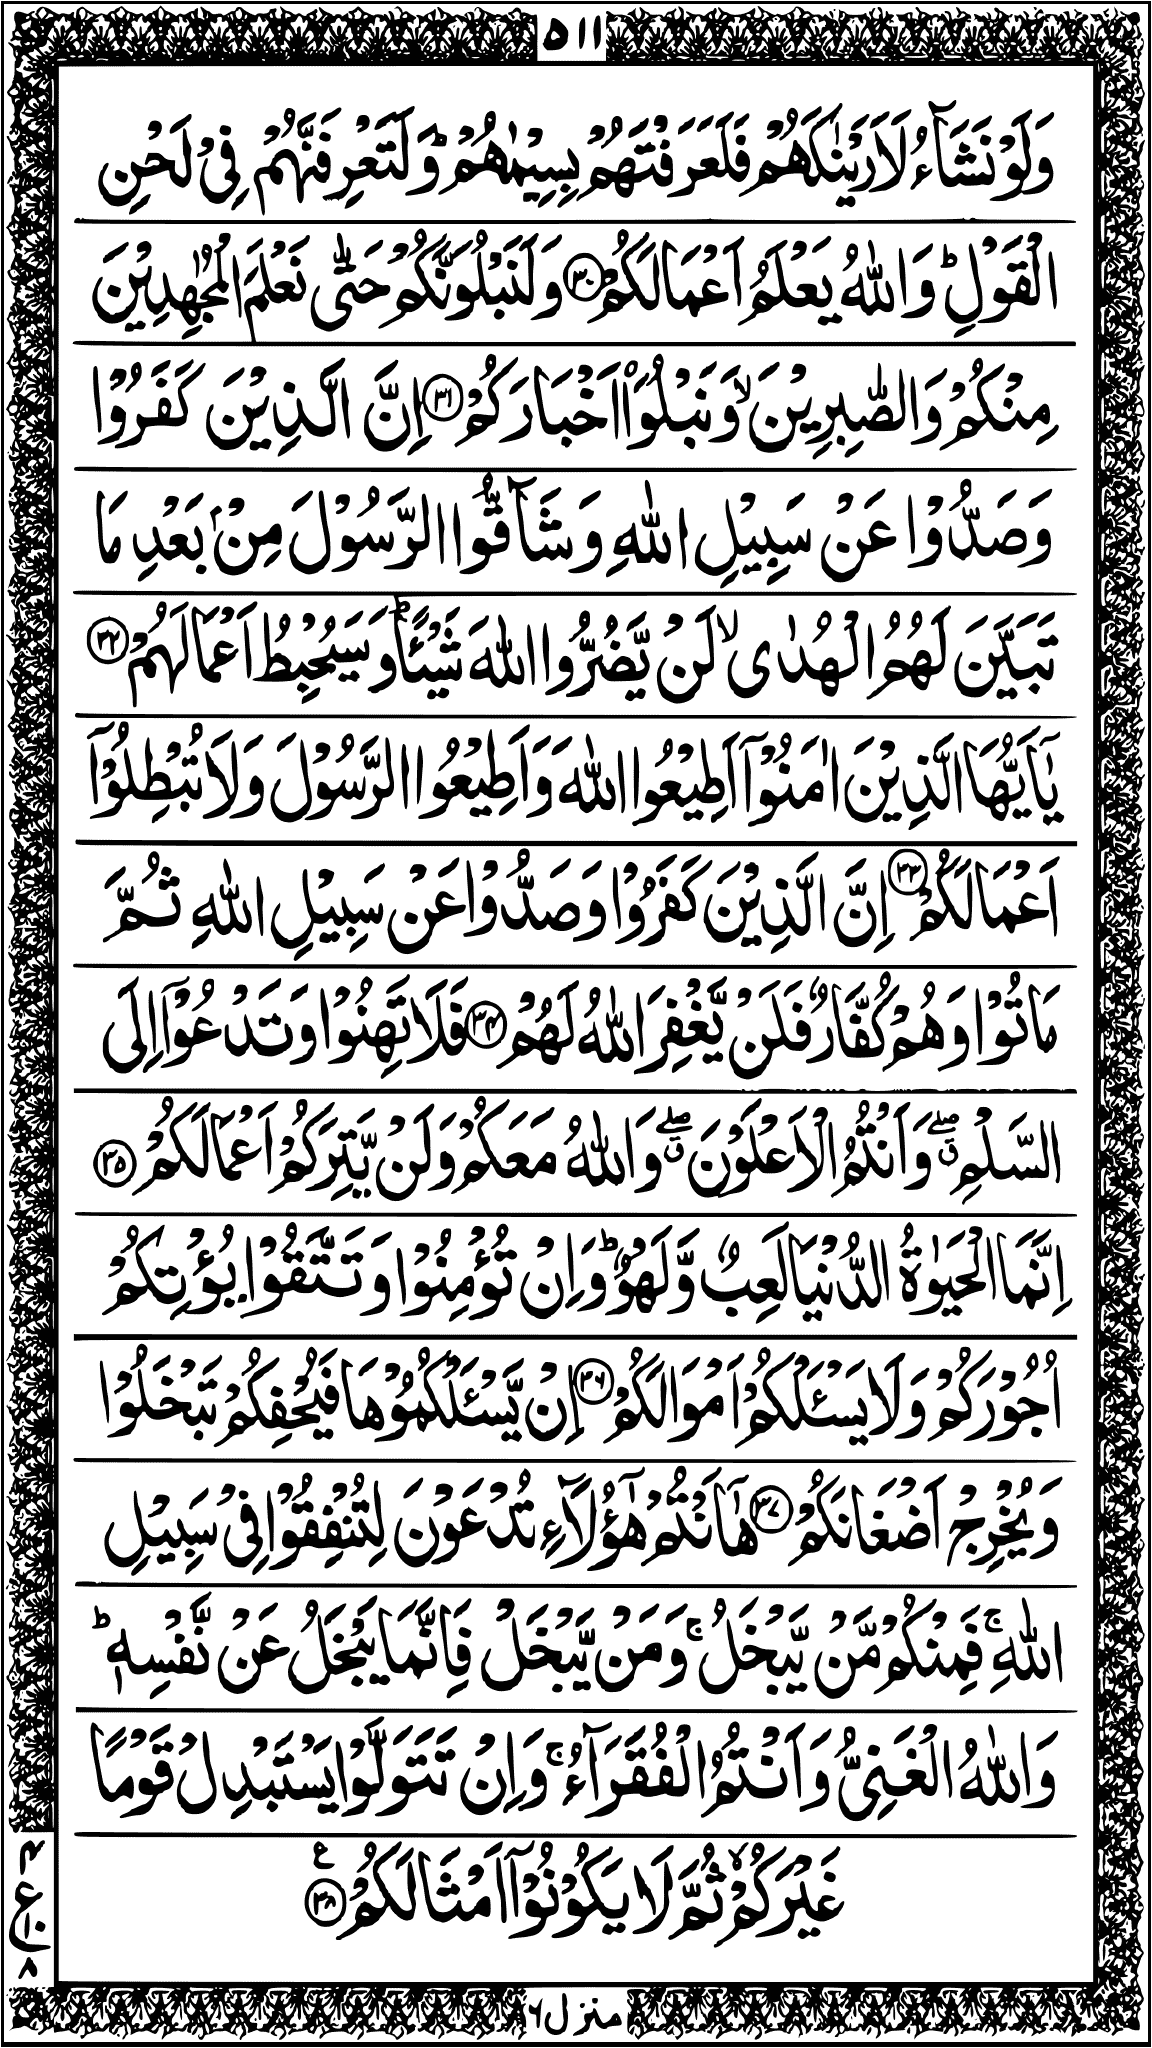 ۵۱۱
وَلَوْ نَشَآءُ لَاَرَيْنٰكَهُمْ فَلَعَرَفْتَهُمْ بِسِيْمٰهُمْ ؕ وَلَتَعْرِفَنَّهُمْ فِيْ لَحْنِ
الْقَوْلِ ؕ وَاللّٰهُ يَعْلَمُ اَعْمَالَكُمْ ﴿۳۰﴾ وَلَنَبْلُوَنَّكُمْ حَتّٰى نَعْلَمَ الْمُجٰهِدِيْنَ
مِنْكُمْ وَالصّٰبِرِيْنَ ۙ وَنَبْلُوَا۟ اَخْبَارَكُمْ ﴿۳۱﴾ اِنَّ الَّذِيْنَ كَفَرُوْا
وَصَدُّوْا عَنْ سَبِيْلِ اللّٰهِ وَشَآقُّوا الرَّسُوْلَ مِنْۢ بَعْدِ مَا
تَبَيَّنَ لَهُمُ الْهُدٰى ۙ لَنْ يَّضُرُّوا اللّٰهَ شَيْـًٔا ؕ وَسَيُحْبِطُ اَعْمَالَهُمْ ﴿۳۲﴾
يٰۤاَيُّهَا الَّذِيْنَ اٰمَنُوْۤا اَطِيْعُوا اللّٰهَ وَاَطِيْعُوا الرَّسُوْلَ وَلَا تُبْطِلُوْۤا
اَعْمَالَكُمْ ﴿۳۳﴾ اِنَّ الَّذِيْنَ كَفَرُوْا وَصَدُّوْا عَنْ سَبِيْلِ اللّٰهِ ثُمَّ
مَاتُوْا وَهُمْ كُفَّارٌ فَلَنْ يَّغْفِرَ اللّٰهُ لَهُمْ ﴿۳۴﴾ فَلَا تَهِنُوْا وَتَدْعُوْۤا اِلَى
السَّلْمِ ۖق وَاَنْتُمُ الْاَعْلَوْنَ ۖق وَاللّٰهُ مَعَكُمْ وَلَنْ يَّتِرَكُمْ اَعْمَالَكُمْ ﴿۳۵﴾
اِنَّمَا الْحَيٰوةُ الدُّنْيَا لَعِبٌ وَّلَهْوٌ ؕ وَاِنْ تُؤْمِنُوْا وَتَتَّقُوْا يُؤْتِكُمْ
اُجُوْرَكُمْ وَلَا يَسْـَٔلْكُمْ اَمْوَالَكُمْ ﴿۳۶﴾ اِنْ يَّسْـَٔلْكُمُوْهَا فَيُحْفِكُمْ تَبْخَلُوْا
وَيُخْرِجْ اَضْغَانَكُمْ ﴿۳۷﴾ هٰۤاَنْتُمْ هٰۤؤُلَآءِ تُدْعَوْنَ لِتُنْفِقُوْا فِيْ سَبِيْلِ
اللّٰهِ ۚ فَمِنْكُمْ مَّنْ يَّبْخَلُ ۚ وَمَنْ يَّبْخَلْ فَاِنَّمَا يَبْخَلُ عَنْ نَّفْسِهٖ ؕ
وَاللّٰهُ الْغَنِيُّ وَاَنْتُمُ الْفُقَرَآءُ ۚ وَاِنْ تَتَوَلَّوْا يَسْتَبْدِلْ قَوْمًا
غَيْرَكُمْ ۙ ثُمَّ لَا يَكُوْنُوْۤا اَمْثَالَكُمْ ﴿۳۸﴾ ع
۴
ع
۱۰
۸
منزل ۶